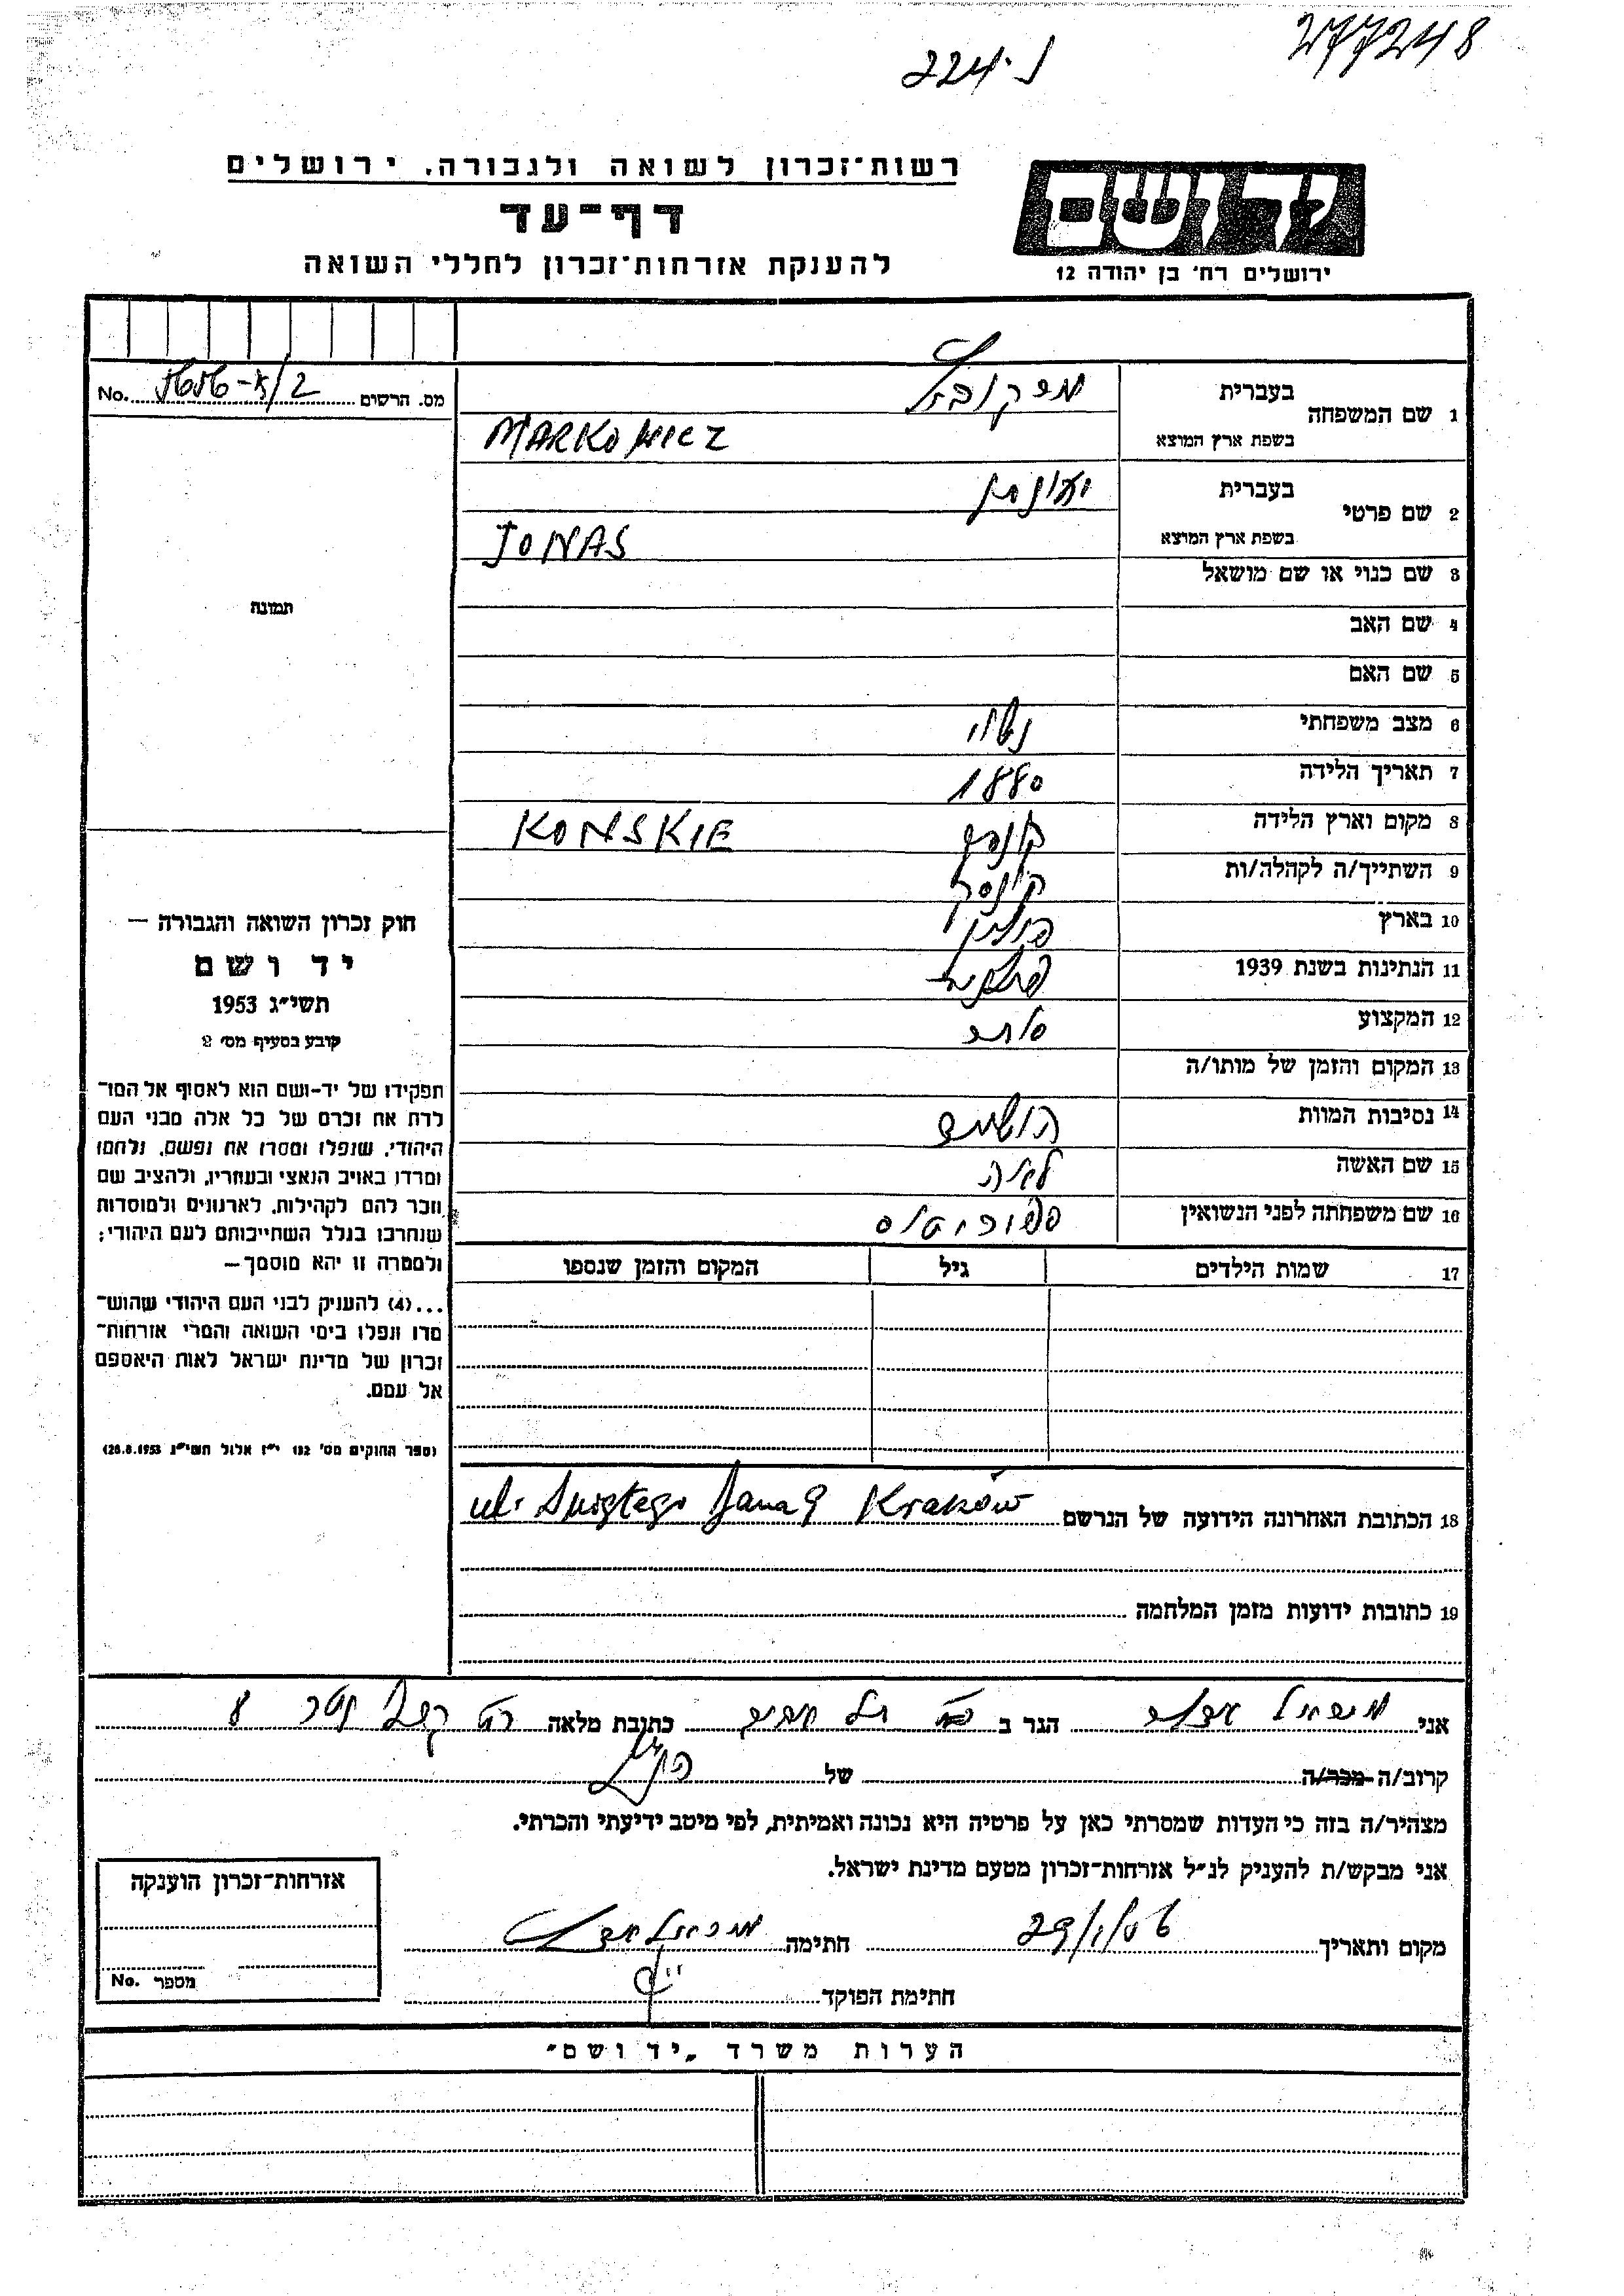 277248
224·נ
רשות־זכרון לשואה ולגבורה, ירושלים
דף־עד
להענקת אזרחות־זכרון לחללי השואה
יד ושם
ירושלים רח' בן יהודה 12
מס. הרשום No.
1 שם המשפחה
בעברית
בשפת ארץ המוצא MARKOWICZ
2 שם פרטי
בעברית
בשפת ארץ המוצא JONAS
3 שם כנוי או שם מושאל
4 שם האב
5 שם האם
6 מצב משפחתי נשוי
7 תאריך הלידה 1880
8 מקום וארץ הלידה KONSKIE
9 השתייך/ה לקהלה/ות קונסק
10 בארץ פולין
11 הנתינות בשנת 1939 פולנית
12 המקצוע סוחר
13 המקום והזמן של מותו/ה
14 נסיבות המוות הושמד
15 שם האשה
16 שם משפחתה לפני הנשואין
17 שמות הילדים גיל המקום והזמן שנספו
18 הכתובת האחרונה הידועה של הנרשם ul. Świętego Jana 9 Kraków
19 כתובות ידועות מזמן המלחמה
תמונה
חוק זכרון השואה והגבורה —
יד ושם
תשי״ג 1953
קובע בסעיף מס׳ 2
תפקידו של יד-ושם הוא לאסוף אל המו־
לדת את זכרם של כל אלה מבני העם
היהודי, שנפלו ומסרו את נפשם, נלחמו
ומרדו באויב הנאצי ובעוזריו, ולהציב שם
וזכר להם לקהילות, לארגונים ולמוסדות
שנחרבו בגלל השתייכותם לעם היהודי;
ולמטרה זו יהא מוסמך—
...(4) להעניק לבני העם היהודי שהוש־
מדו ונפלו בימי השואה והמרי אזרחות־
זכרון של מדינת ישראל לאות היאספם
אל עמם.
(ספר החוקים מס׳ 132 י״ז אלול תשי״ג 28.8.1953)
אני הגר ב תל אביב כתובת מלאה 8
קרוב/ה מכר/ה של
מצהיר/ה בזה כי העדות שמסרתי כאן על פרטיה היא נכונה ואמיתית, לפי מיטב ידיעתי והכרתי.
אני מבקש/ת להעניק לנ״ל אזרחות־זכרון מטעם מדינת ישראל.
מקום ותאריך 29/1/56 חתימה
חתימת הפוקד
אזרחות־זכרון הוענקה
מספר No.
הערות משרד „יד ושם״